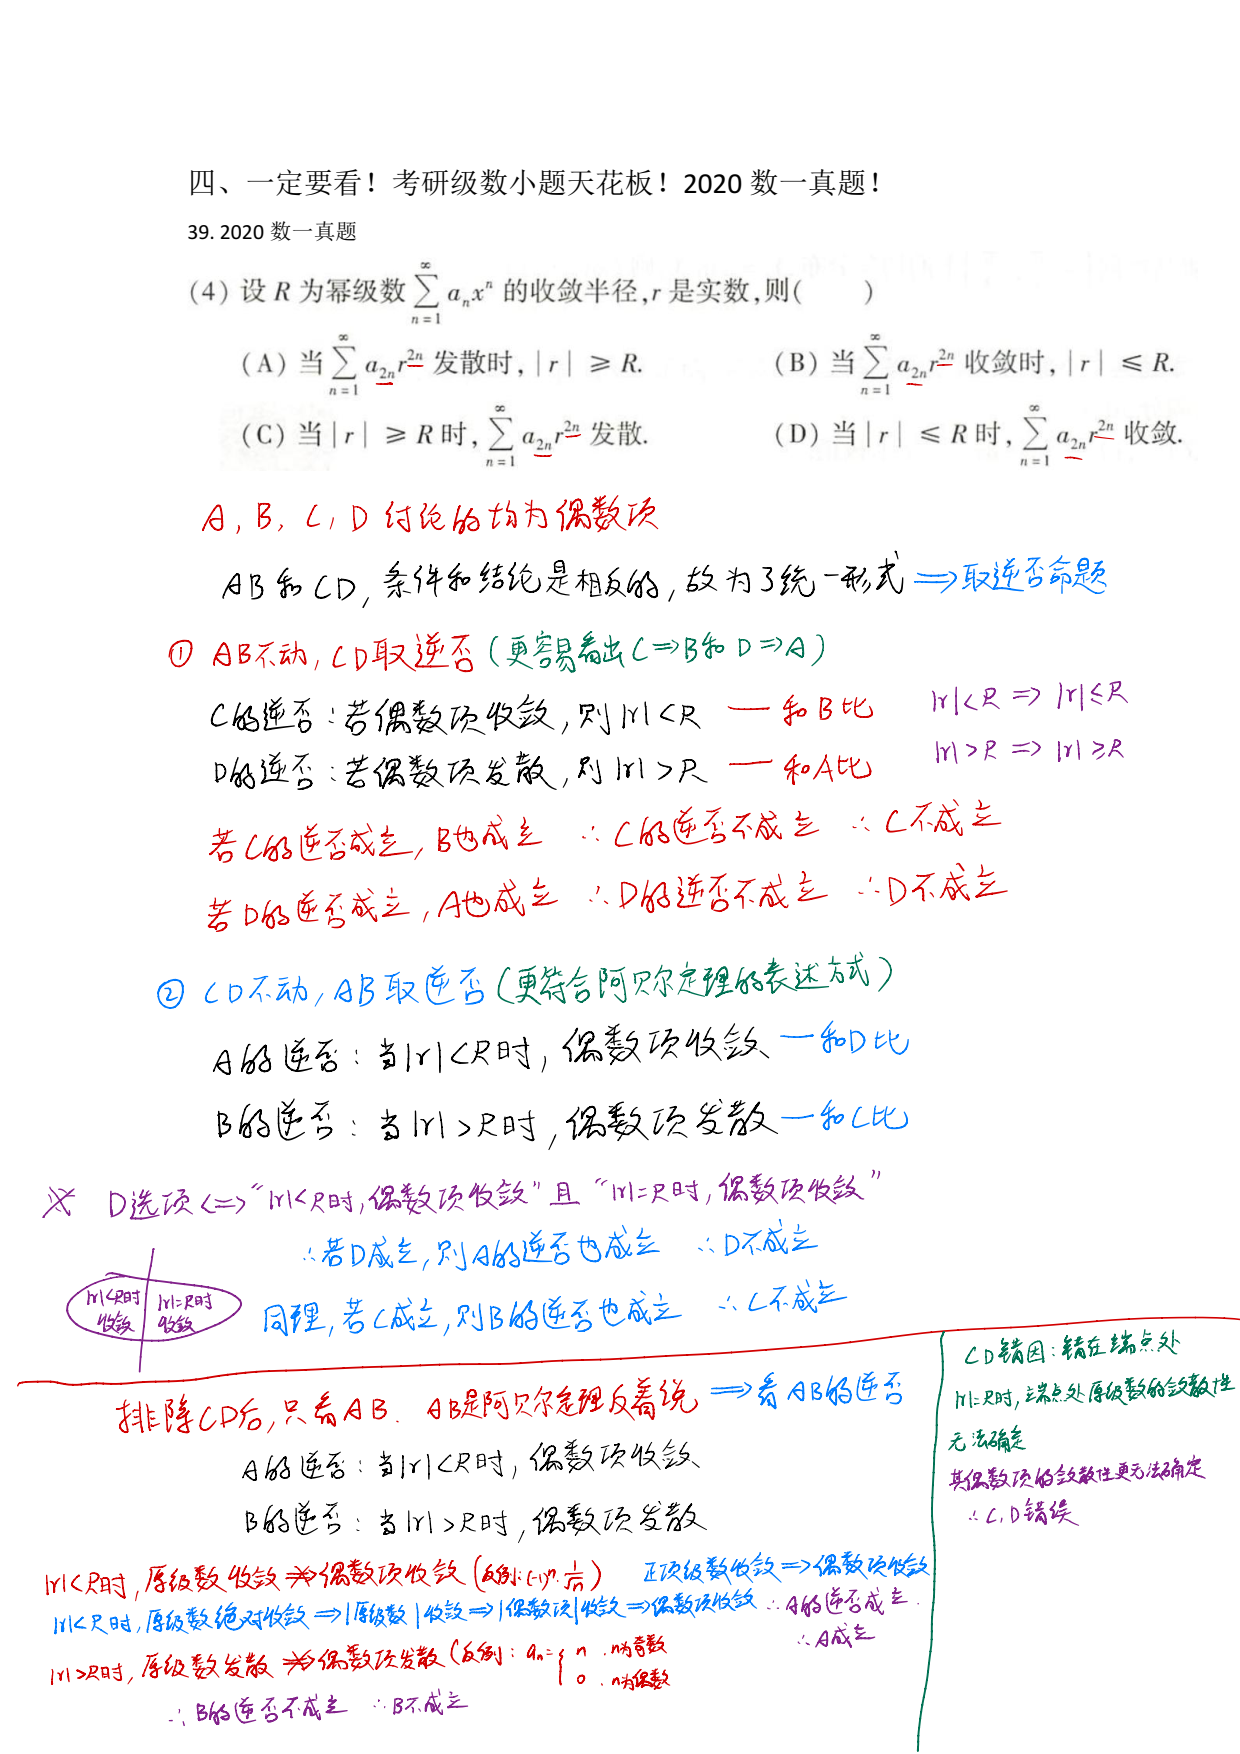 四、一定要看！考研级数小题天花板！2020 数一真题！
39. 2020 数一真题
(4) 设 R 为幂级数 ∑_{n=1}^{∞} a_n x^n 的收敛半径, r 是实数, 则(　　)
(A) 当 ∑_{n=1}^{∞} a_{2n} r^{2n} 发散时, |r| ≥ R.　(B) 当 ∑_{n=1}^{∞} a_{2n} r^{2n} 收敛时, |r| ≤ R.
(C) 当 |r| ≥ R 时, ∑_{n=1}^{∞} a_{2n} r^{2n} 发散.　(D) 当 |r| ≤ R 时, ∑_{n=1}^{∞} a_{2n} r^{2n} 收敛.
A, B, C, D 讨论的均为偶数项
AB 和 CD, 条件和结论是相反的, 故为了统一形式 ⇒ 取逆否命题
① AB不动, CD取逆否 (更容易看出 C⇒B 和 D⇒A)
C的逆否: 若偶数项收敛, 则 |r|<R — 和B比　|r|<R ⇒ |r|≤R
D的逆否: 若偶数项发散, 则 |r|>R — 和A比　|r|>R ⇒ |r|≥R
若C的逆否成立, B也成立 ∴ C的逆否不成立 ∴ C不成立
若D的逆否成立, A也成立 ∴ D的逆否不成立 ∴ D不成立
② CD不动, AB取逆否 (更符合阿贝尔定理的表达方式)
A的逆否: 当|r|<R时, 偶数项收敛 — 和D比
B的逆否: 当|r|>R时, 偶数项发散 — 和C比
※ D选项 <=> “|r|<R时, 偶数项收敛” 且 “|r|=R时, 偶数项收敛”
∴ 若D成立, 则A的逆否也成立 ∴ D不成立
|r|<R时 收敛　|r|=R时 收敛
同理, 若C成立, 则B的逆否也成立 ∴ C不成立
排除CD后, 只看AB. AB是阿贝尔定理反着说 ⇒ 看AB的逆否
A的逆否: 当|r|<R时, 偶数项收敛
B的逆否: 当|r|>R时, 偶数项发散
|r|<R时, 原级数收敛 ⇏ 偶数项收敛 (反例: (-1)^n·1/n)　正项级数收敛 ⇒ 偶数项收敛
|r|<R时, 原级数绝对收敛 ⇒ |原级数|收敛 ⇒ |偶数项|收敛 ⇒ 偶数项收敛 ∴ A的逆否成立.
∴ A成立
|r|>R时, 原级数发散 ⇏ 偶数项发散 (反例: a_n = { n . n为奇数
0 . n为偶数
∴ B的逆否不成立 ∴ B不成立
CD错因: 错在端点处
|r|=R时, 端点处原级数的敛散性
无法确定
其偶数项的敛散性更无法确定
∴ C, D错误